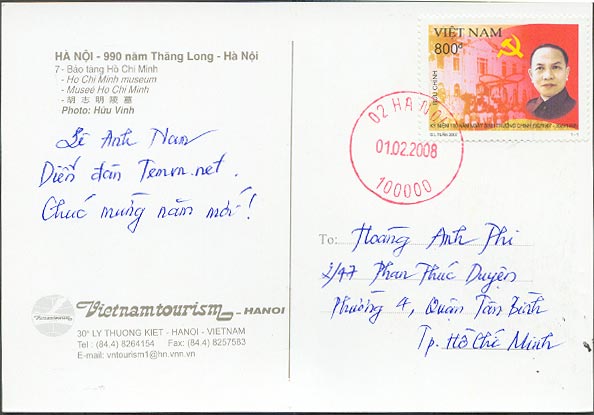 HÀ NỘI - 990 năm Thăng Long - Hà Nội
7 - Bảo tàng Hồ Chí Minh
- Ho Chi Minh museum
- Museé Ho Chi Minh
- 胡志明陵墓
Photo: Hữu Vinh
Lê Anh Nam
Diễn đàn Temvn.net.
Chúc mừng năm mới!
Vietnamtourism - HANOI
30A LY THUONG KIET - HANOI - VIETNAM
Tel : (84.4) 8264154 Fax: (84.4) 8257583
E-mail: vntourism1@hn.vnn.vn
VIỆT NAM
800đ
BƯU CHÍNH
02 HA NOI
01.02.2008
100000
To: Hoàng Anh Thi
2/47 Phan Thúc Duyện
Phường 4, Quận Tân Bình
Tp. Hồ Chí Minh